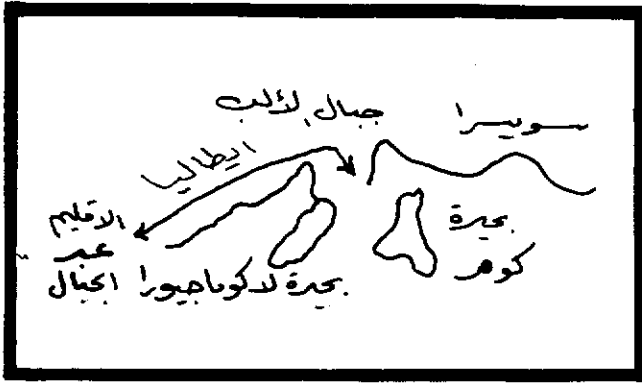 سويسرا
جبال الألب
ايطاليا
الاقليم
عبر
الجبال
بحيرة لاكوماجيورا
بحيرة
كومر